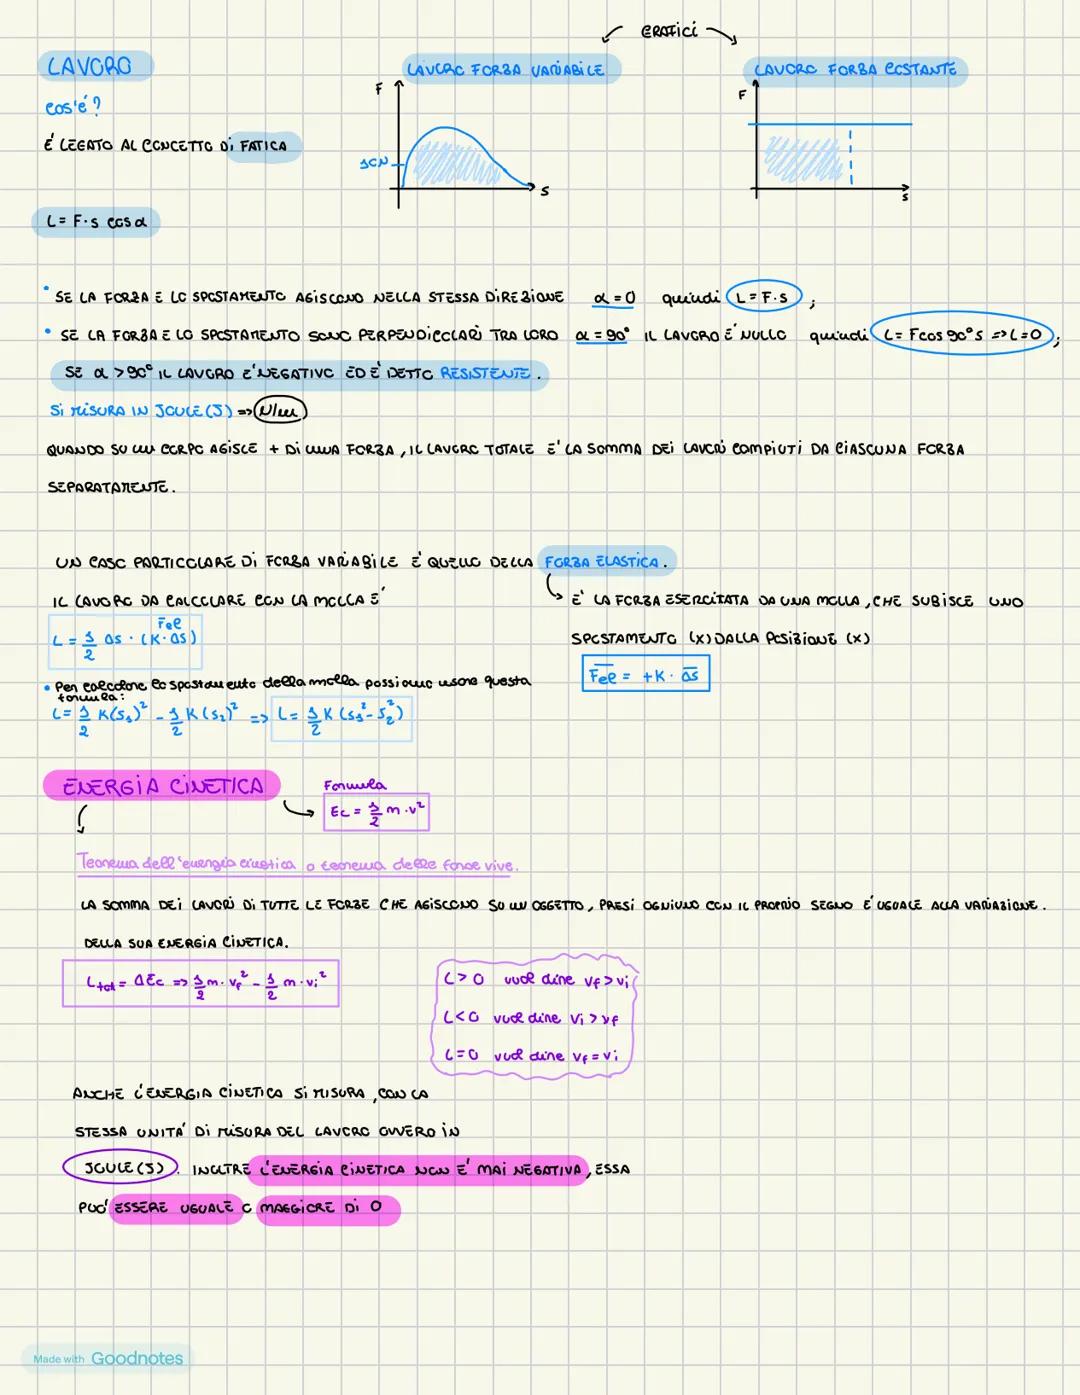 GRAFICI
LAVORO
LAVORO FORZA VARIABILE
LAVORO FORZA COSTANTE
F
F
cos'é?
É LEGATO AL CONCETTO Di FATICA
10N
S
S
L= F·s cosα
• SE LA FORZA E LO SPOSTAMENTO AGISCONO NELLA STESSA DIREZIONE α=0 quindi L=F·S ;
• SE LA FORZA E LO SPOSTAMENTO SONO PERPENDICOLARI TRA LORO α=90° IL LAVORO É NULLO quindi L= Fcos 90° S => L=0 ;
SE α >90° IL LAVORO E' NEGATIVO ED E' DETTO RESISTENTE.
Si MISURA IN JOULE (J) => N/m
QUANDO SU UN CORPO AGISCE + Di UNA FORZA, IL LAVORO TOTALE E' LA SOMMA DEI LAVORI COMPIUTI DA CIASCUNA FORZA
SEPARATAMENTE.
UN CASO PARTICOLARE Di FORZA VARIABILE É QUELLO DELLA FORZA ELASTICA.
IL LAVORO DA CALCOLARE CON LA MOLLA E'
E' LA FORZA ESERCITATA DA UNA MOLLA, CHE SUBISCE UNO
Fel
L= 1/2 ΔS · (K·ΔS)
SPOSTAMENTO (X) DALLA POSIZIONE (X)
Fel = +K· ΔS
• Per calcolare lo spostamento della molla possiamo usare questa
formula:
L= 1/2 K(S₁)² - 1/2 K(S₂)² => L= 1/2 K (S₁² - S₂²)
ENERGIA CINETICA
Formula
Ec= 1/2 m·v²
Teorema dell'energia cinetica o teorema delle forze vive.
LA SOMMA DEI LAVORI Di TUTTE LE FORZE CHE AGISCONO SU UN OGGETTO, PRESI OGNIUNO CON IL PROPRIO SEGNO E' UGUALE ALLA VARIAZIONE.
DELLA SUA ENERGIA CINETICA.
Ltot= ΔEc => 1/2 m·vf² - 1/2 m·vi²
L>0 vuol dire vf>vi
L<0 vuol dire vi>vf
L=0 vuol dire vf=vi
ANCHE L'ENERGIA CINETICA Si MISURA, CON LA
STESSA UNITA' Di MISURA DEL LAVORO OVVERO iN
JOULE (J). INOLTRE L'ENERGIA CINETICA NON E' MAI NEGATIVA, ESSA
PUO' ESSERE UGUALE O MAGGIORE Di O
Made with Goodnotes